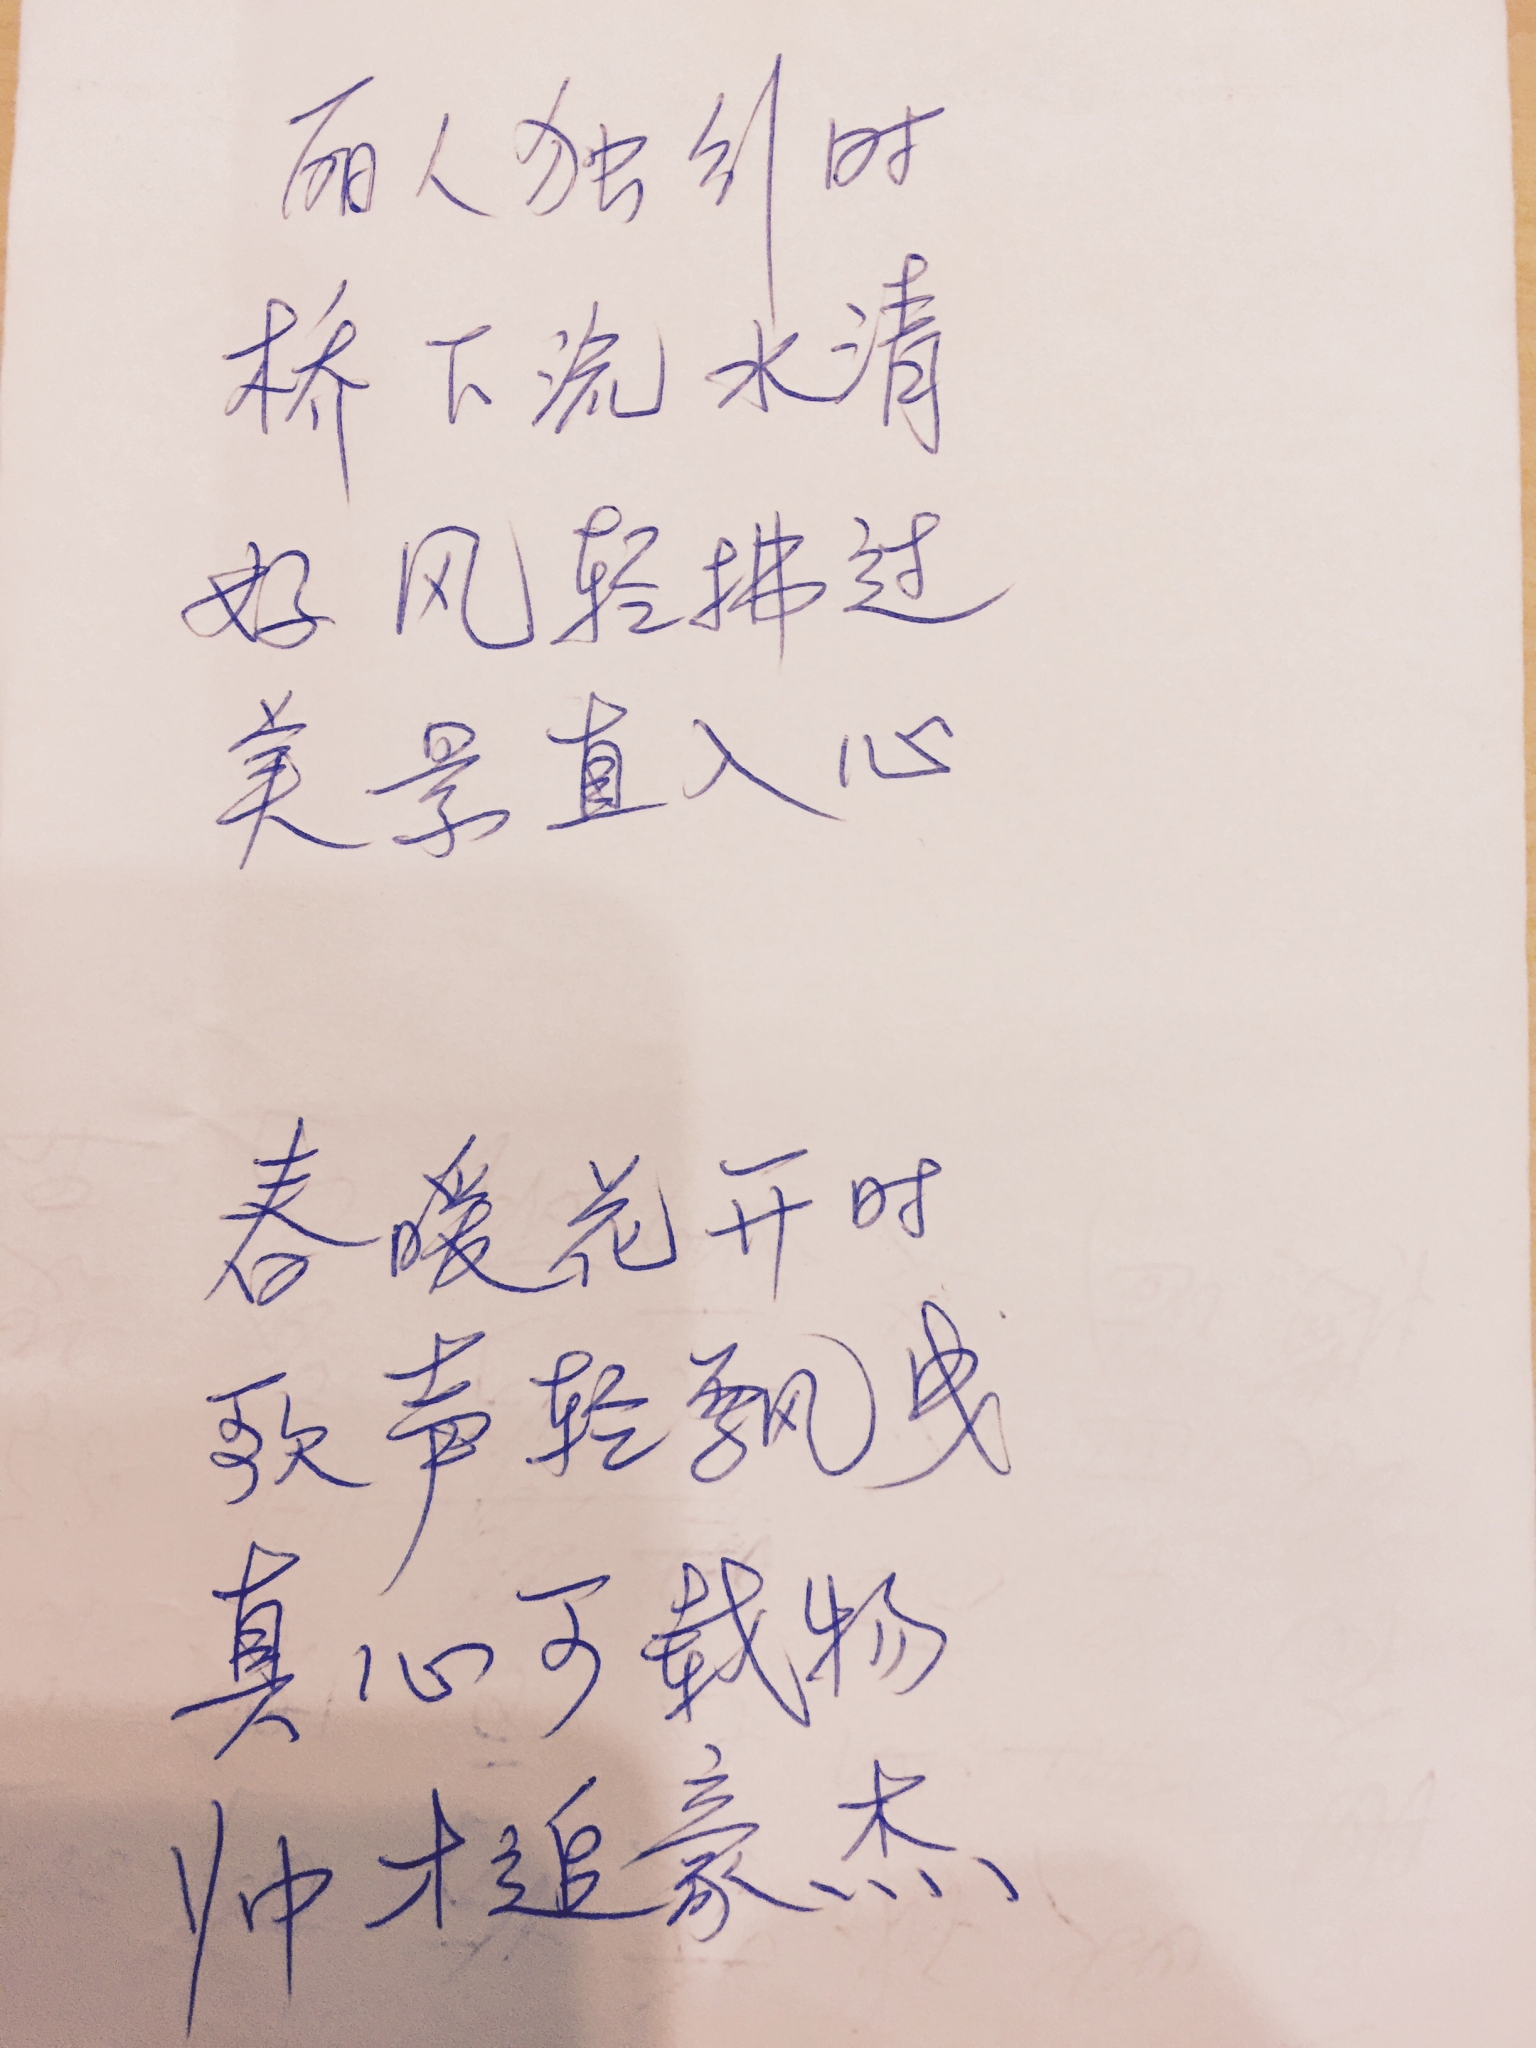 丽人独 时
桥下流水清
好风轻拂过
美景直入心
春暖花开时
歌声轻飘曳
真心可载物
帅才追豪杰